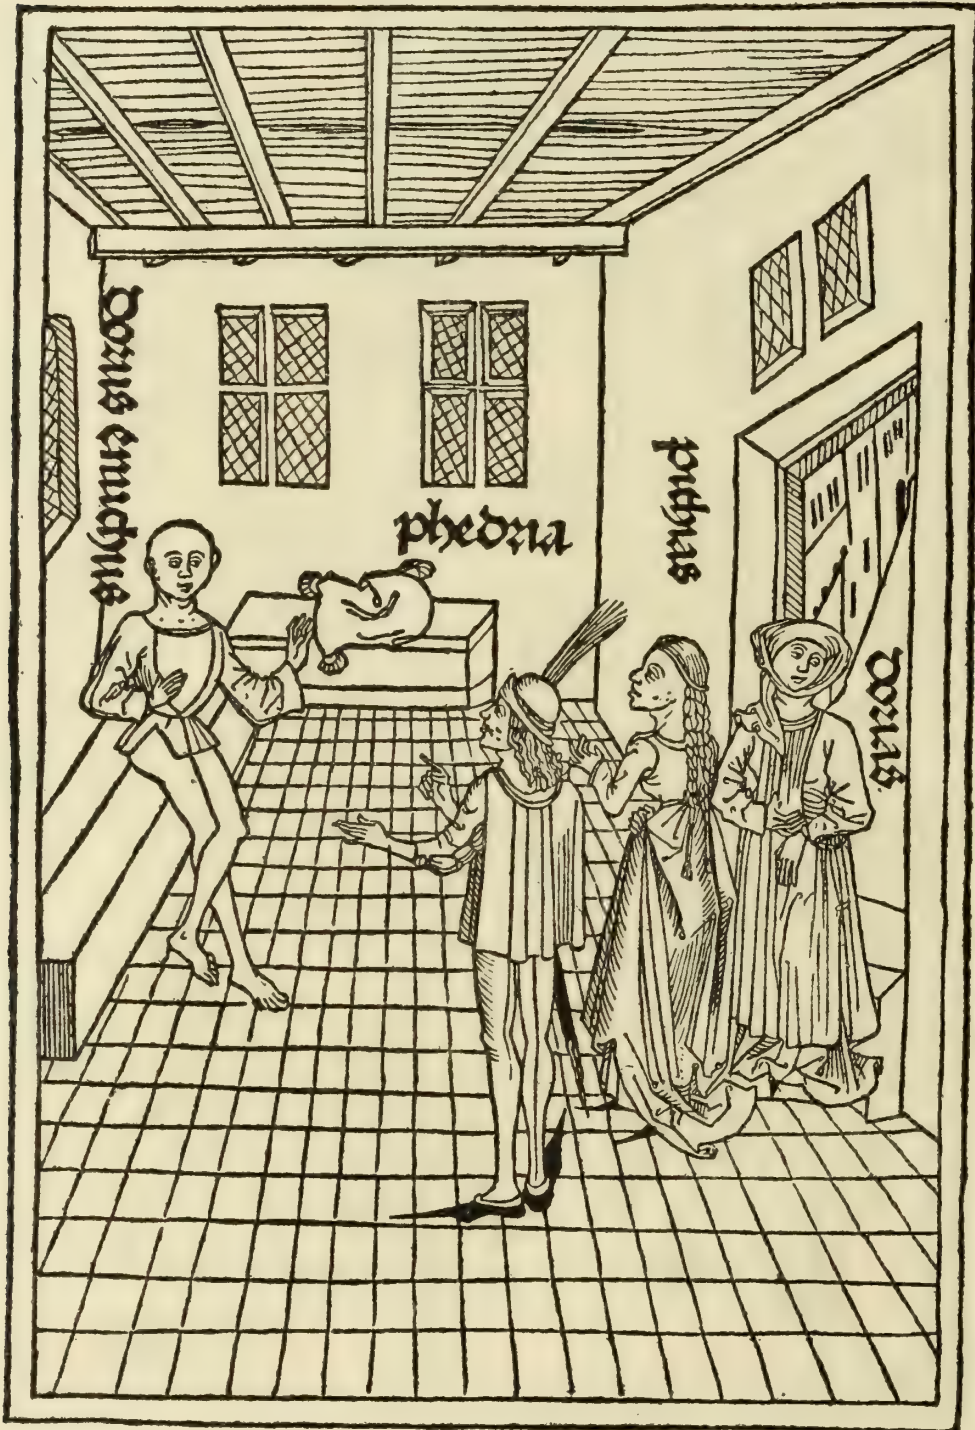 dorus enuchus
phedria
pithias
dorias